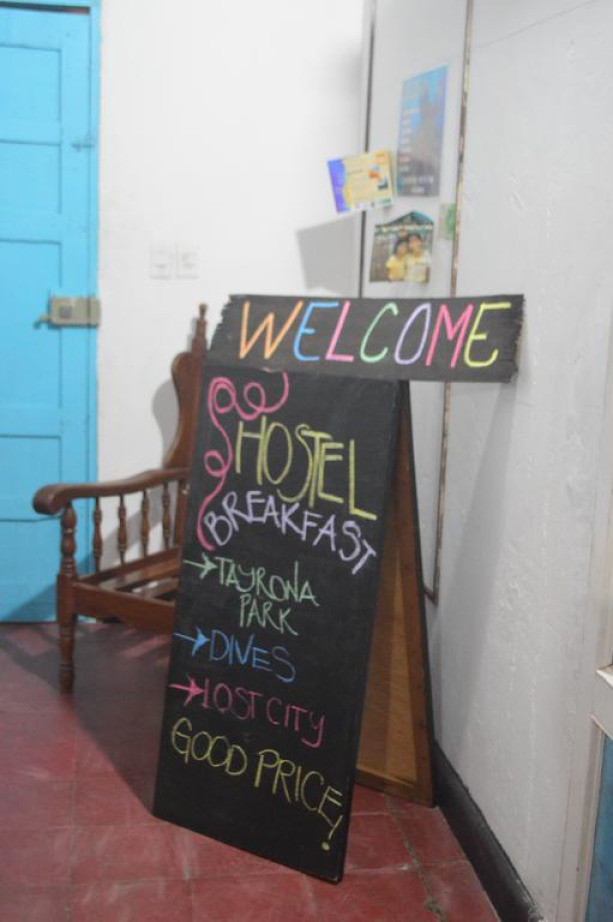 WELCOME
HOSTEL
BREAKFAST
→TAYRONA
PARK
→DIVES
→LOST CITY
GOOD PRICE!